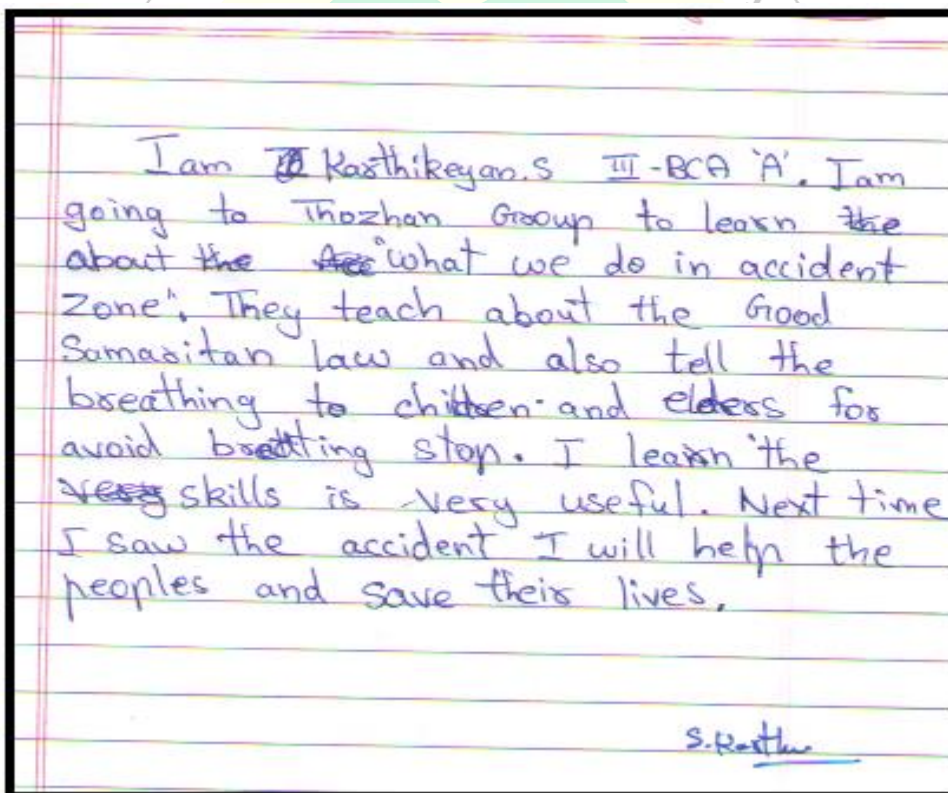 I am Karthikeyan.S III-BCA 'A'. I am
going to Thozhan Group to learn the
about the 'what we do in accident
Zone'. They teach about the Good
Samaritan Law and also tell the
breathing to children and elders for
avoid breatting stop. I learn the
very skills is very useful. Next time
I saw the accident I will help the
peoples and save their lives.
S.Karthi